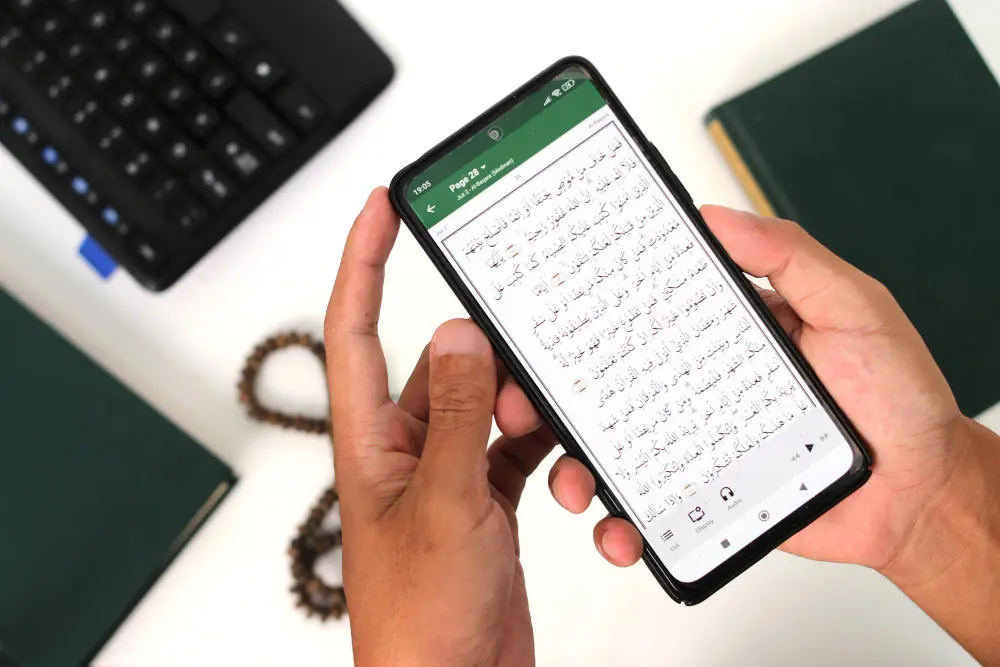 19:05
Page 28
Juz 2 - Al-Baqara (Medinan)
Juz 2
28
Al-Baqara
فَمَنْ خَافَ مِن مُّوصٍ جَنَفًا أَوْ إِثْمًا فَأَصْلَحَ بَيْنَهُمْ
فَلَا إِثْمَ عَلَيْهِ إِنَّ اللَّهَ غَفُورٌ رَّحِيمٌ يَٰٓأَيُّهَا
الَّذِينَ ءَامَنُوا كُتِبَ عَلَيْكُمُ الصِّيَامُ كَمَا كُتِبَ عَلَى
الَّذِينَ مِن قَبْلِكُمْ لَعَلَّكُمْ تَتَّقُونَ أَيَّامًا
مَّعْدُودَٰتٍ فَمَن كَانَ مِنكُم مَّرِيضًا أَوْ عَلَىٰ سَفَرٍ
فَعِدَّةٌ مِّنْ أَيَّامٍ أُخَرَ وَعَلَى الَّذِينَ يُطِيقُونَهُ فِدْيَةٌ
طَعَامُ مِسْكِينٍ فَمَن تَطَوَّعَ خَيْرًا فَهُوَ خَيْرٌ لَّهُ
وَأَن تَصُومُوا خَيْرٌ لَّكُمْ إِن كُنتُمْ تَعْلَمُونَ
شَهْرُ رَمَضَانَ الَّذِي أُنزِلَ فِيهِ الْقُرْءَانُ هُدًى
لِّلنَّاسِ وَبَيِّنَٰتٍ مِّنَ الْهُدَىٰ وَالْفُرْقَانِ فَمَن شَهِدَ
مِنكُمُ الشَّهْرَ فَلْيَصُمْهُ وَمَن كَانَ مَرِيضًا أَوْ عَلَىٰ
سَفَرٍ فَعِدَّةٌ مِّنْ أَيَّامٍ أُخَرَ يُرِيدُ اللَّهُ بِكُمُ الْيُسْرَ وَلَا
يُرِيدُ بِكُمُ الْعُسْرَ وَلِتُكْمِلُوا الْعِدَّةَ وَلِتُكَبِّرُوا اللَّهَ
عَلَىٰ مَا هَدَىٰكُمْ وَلَعَلَّكُمْ تَشْكُرُونَ وَإِذَا سَأَلَكَ
List
Display
Audio